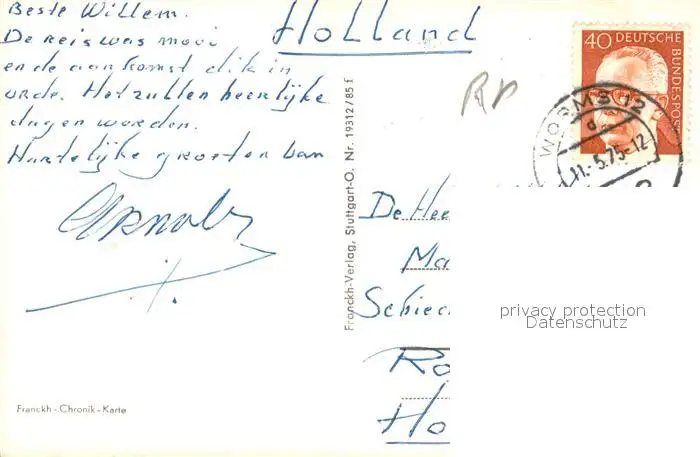 Beste Willem.
De reis was mooi
en de aankomst dik in
orde. Het zullen heerlijke
dagen worden.
Hartelijke groeten van
Holland
40 DEUTSCHE BUNDESPOST
WORMS 12
a
11.-5.75-12
Franckh-Verlag, Stuttgart-O. Nr. 19312/85 f
De Hee
Ma
Schie
Ro
Ho
privacy protection
Datenschutz
Franckh-Chronik-Karte